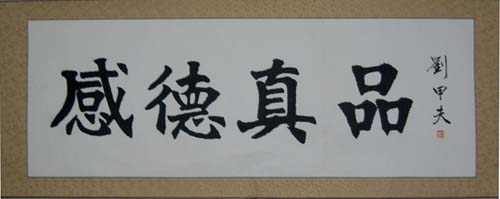 感德真品
劉甲夫